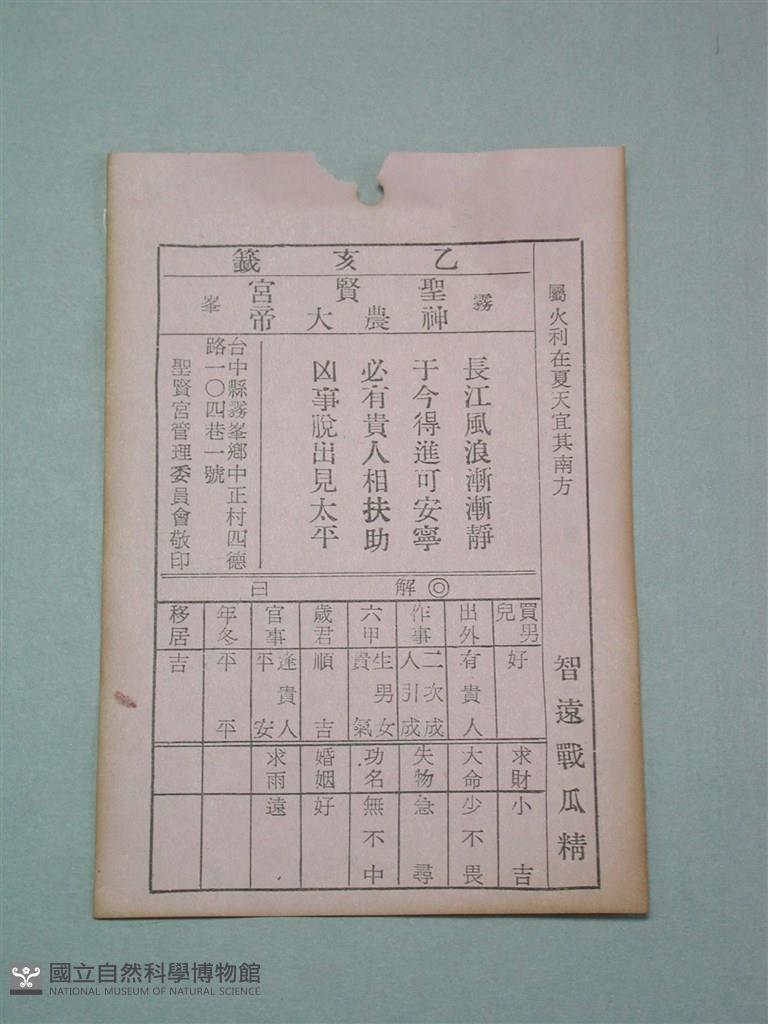 屬火利在夏天宜其南方
智遠戰瓜精
乙亥籤
霧峯
聖賢宮
神農大帝
長江風浪漸漸靜
于今得進可安寧
必有貴人相扶助
凶事脫出見太平
台中縣霧峯鄉中正村四德
路一〇四巷一號
聖賢宮管理委員會敬印
◎解曰
買男兒 好
出外 有貴人
作事 二次成人引成
六甲 生男女貴氣
歲君 順吉
官事 逢貴人平安
年冬 平平
移居 吉
求財 小吉
大命 少不畏
失物 急尋
功名 無不中
婚姻 好
求雨 遠
國立自然科學博物館
NATIONAL MUSEUM OF NATURAL SCIENCE